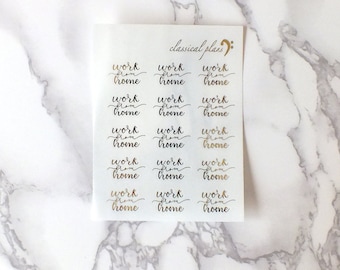 classical plans
work work work
from from from
home home home
work work work
from from from
home home home
work work work
from from from
home home home
work work work
from from from
home home home
work work work
from from from
home home home